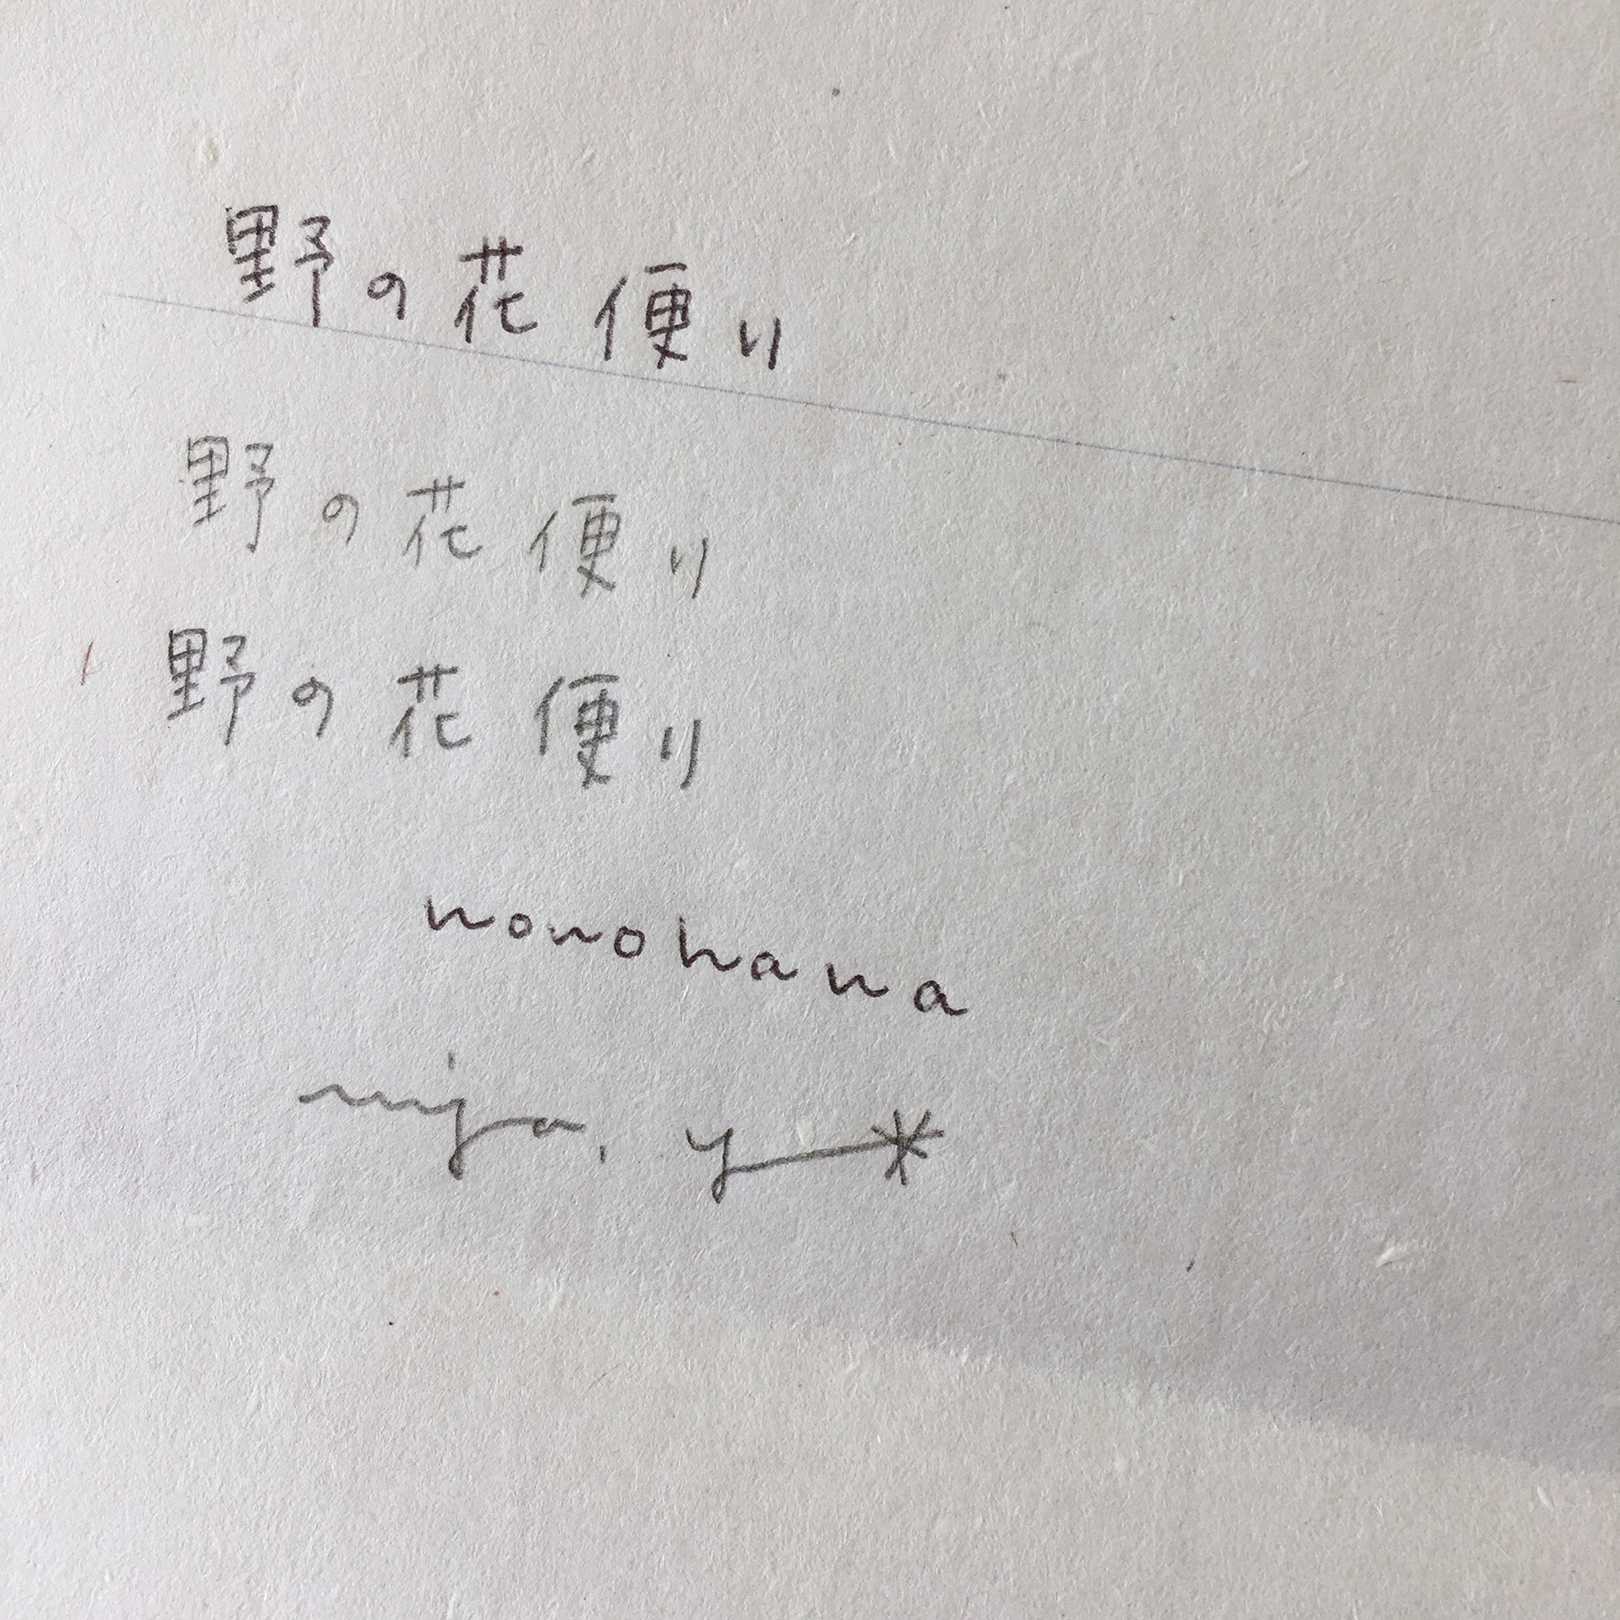 野の花便り
野の花便り
野の花便り
nonohana
miya. y